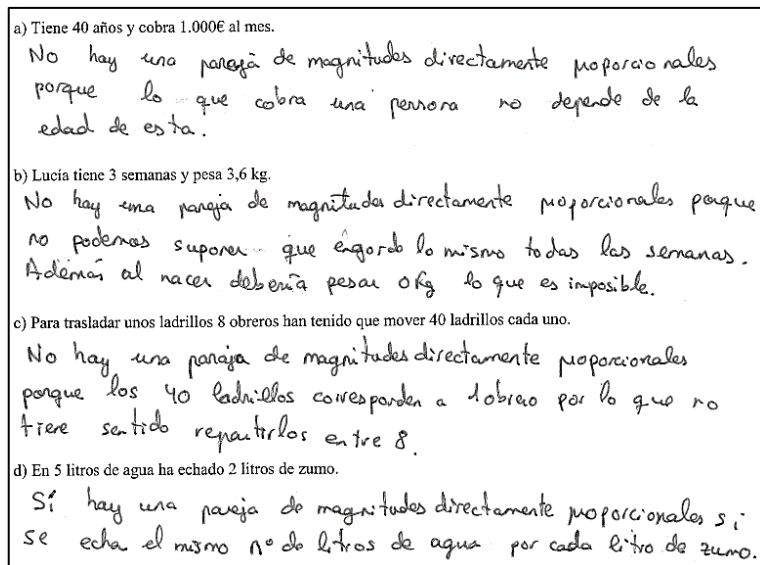 a) Tiene 40 años y cobra 1.000€ al mes.
No hay una pareja de magnitudes directamente proporcionales
porque lo que cobra una persona no depende de la
edad de esta.
b) Lucía tiene 3 semanas y pesa 3,6 kg.
No hay una pareja de magnitudes directamente proporcionales porque
no podemos suponer que engordo lo mismo todas las semanas.
Además al nacer debería pesar 0Kg lo que es imposible.
c) Para trasladar unos ladrillos 8 obreros han tenido que mover 40 ladrillos cada uno.
No hay una pareja de magnitudes directamente proporcionales
porque los 40 ladrillos corresponden a 1 obrero por lo que no
tiene sentido repartirlos entre 8.
d) En 5 litros de agua ha echado 2 litros de zumo.
Sí hay una pareja de magnitudes directamente proporcionales si
se echa el mismo nº de litros de agua por cada litro de zumo.